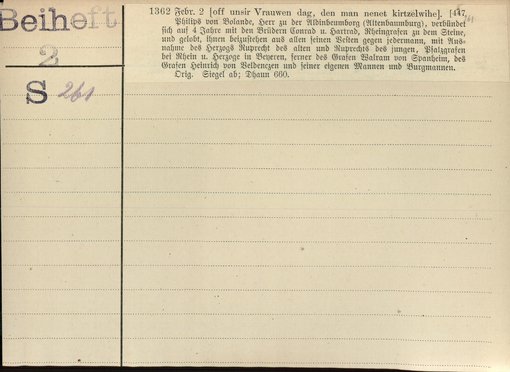 Beiheft
2
S 261
1362 Febr. 2 [off unsir Vrauwen dag, den man nenet kirtzelwihe].
Philips von Bolande, Herr zu der Aldinbeumborg (Altenbaumburg), verbündet
sich auf 4 Jahre mit den Brüdern Conrad u. Hartrad, Rheingrafen zu dem Steine,
und gelobt, ihnen beizustehen aus allen seinen Vesten gegen jedermann, mit Aus-
nahme des Herzogs Ruprecht des alten und Ruprechts des jungen, Pfalzgrafen
bei Rhein u. Herzoge in Beyeren, ferner des Grafen Walram von Spanheim, des
Grafen Heinrich von Veldenczen und seiner eigenen Mannen und Burgmannen.
Orig. Siegel ab; Dhaun 660.